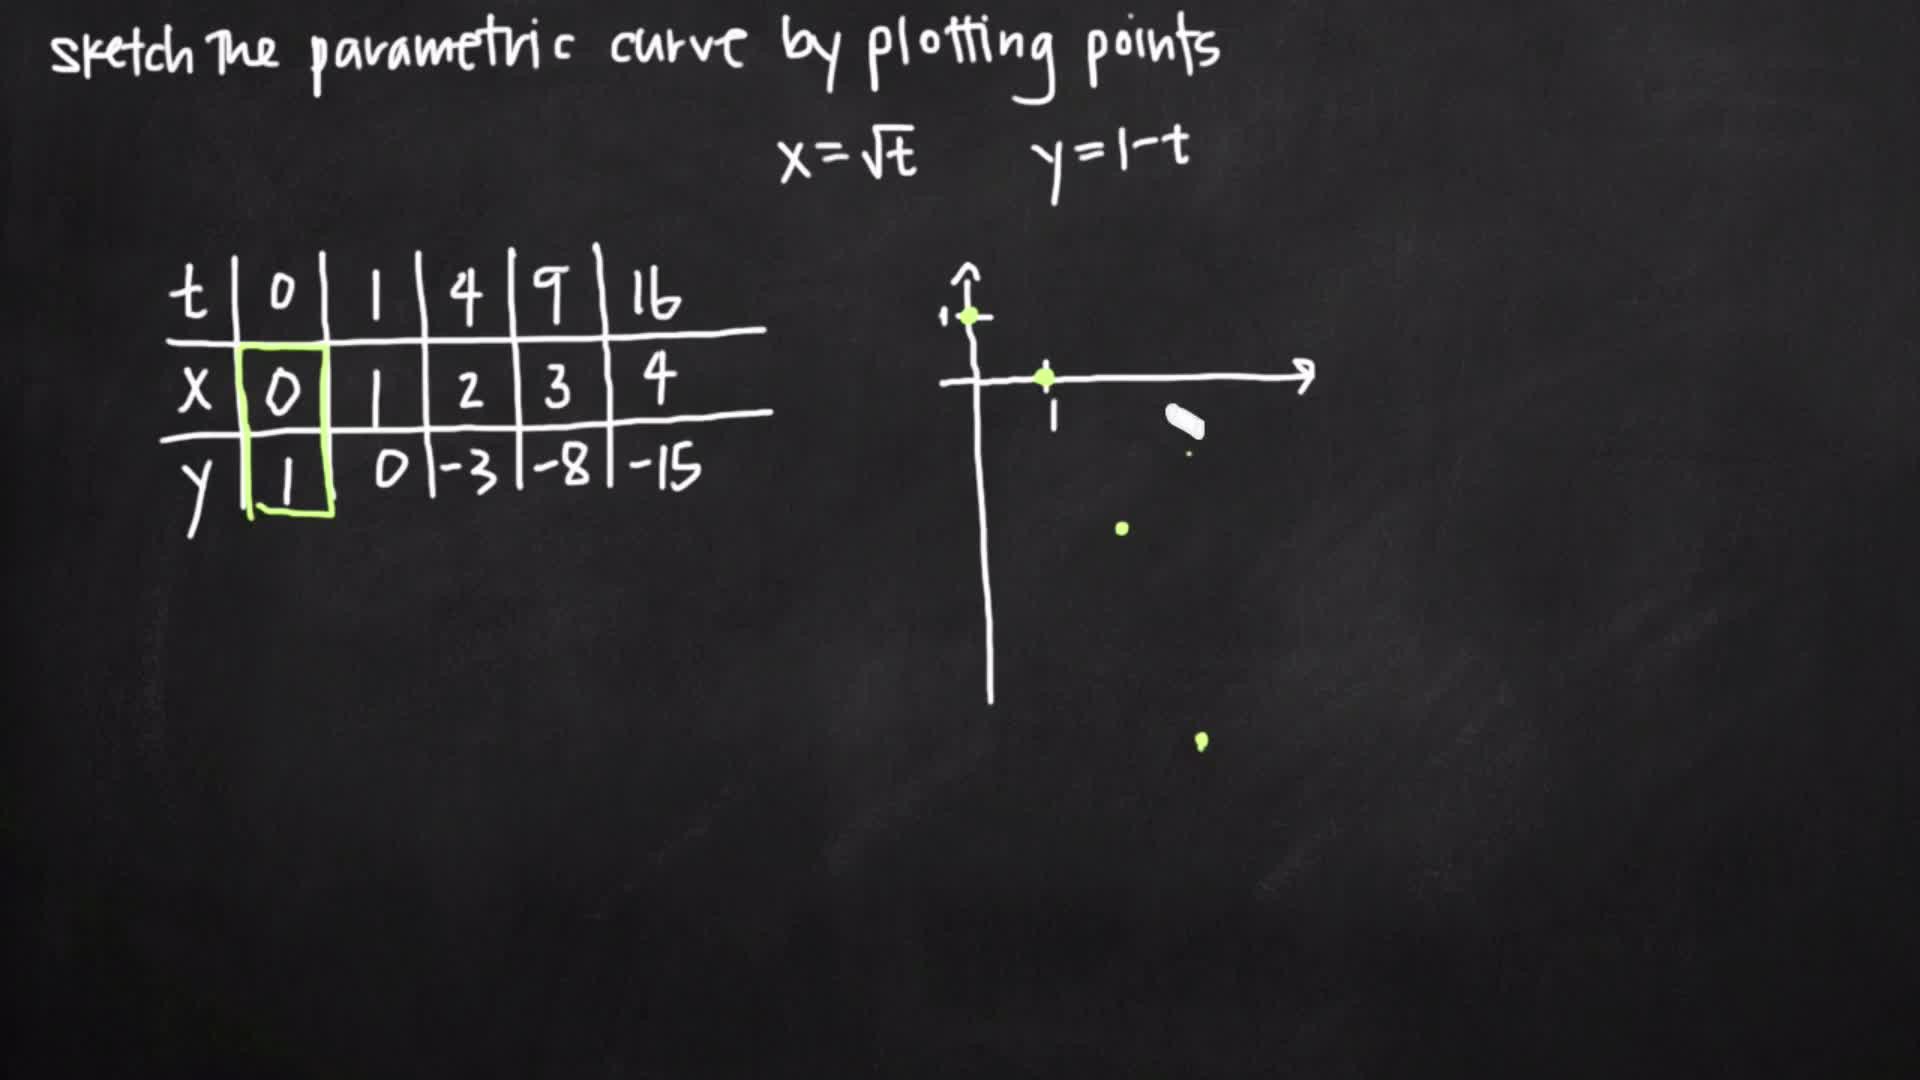 sketch the parametric curve by plotting points
x=√t y=1-t
t 0 1 4 9 16
x 0 1 2 3 4
y 1 0 -3 -8 -15
1
1